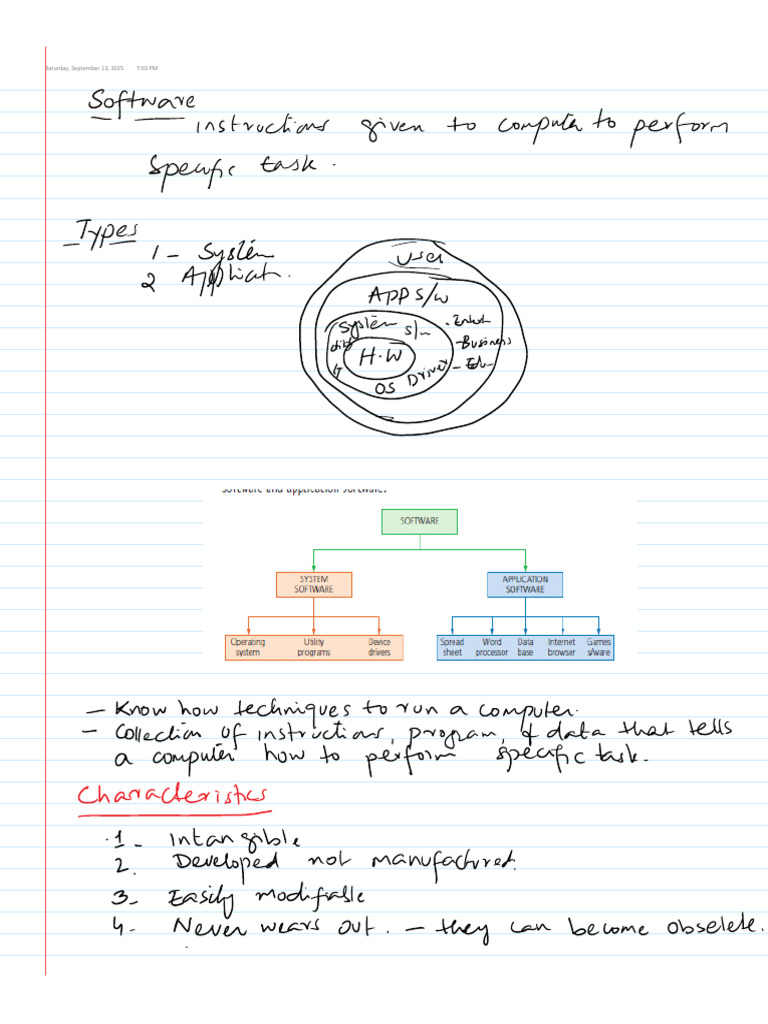 Saturday, September 13, 2025 7:03 PM
Software
instructions given to computer to perform
specific task.
Types
1 - System
2 Applicat.
User
APP S/W
System S/w
H.W
OS Driver
- Business
SOFTWARE
SYSTEM SOFTWARE
APPLICATION SOFTWARE
Operating system
Utility programs
Device drivers
Spread sheet
Word processor
Data base
Internet browser
Games s/ware
- Know how techniques to run a computer.
- Collection of instructions, program, & data that tells
a computer how to perform specific task.
Characteristics
1 - Intangible
2. Developed not manufactured.
3 - Easily modifiable
4 - Never wears out. - they can become obselete.